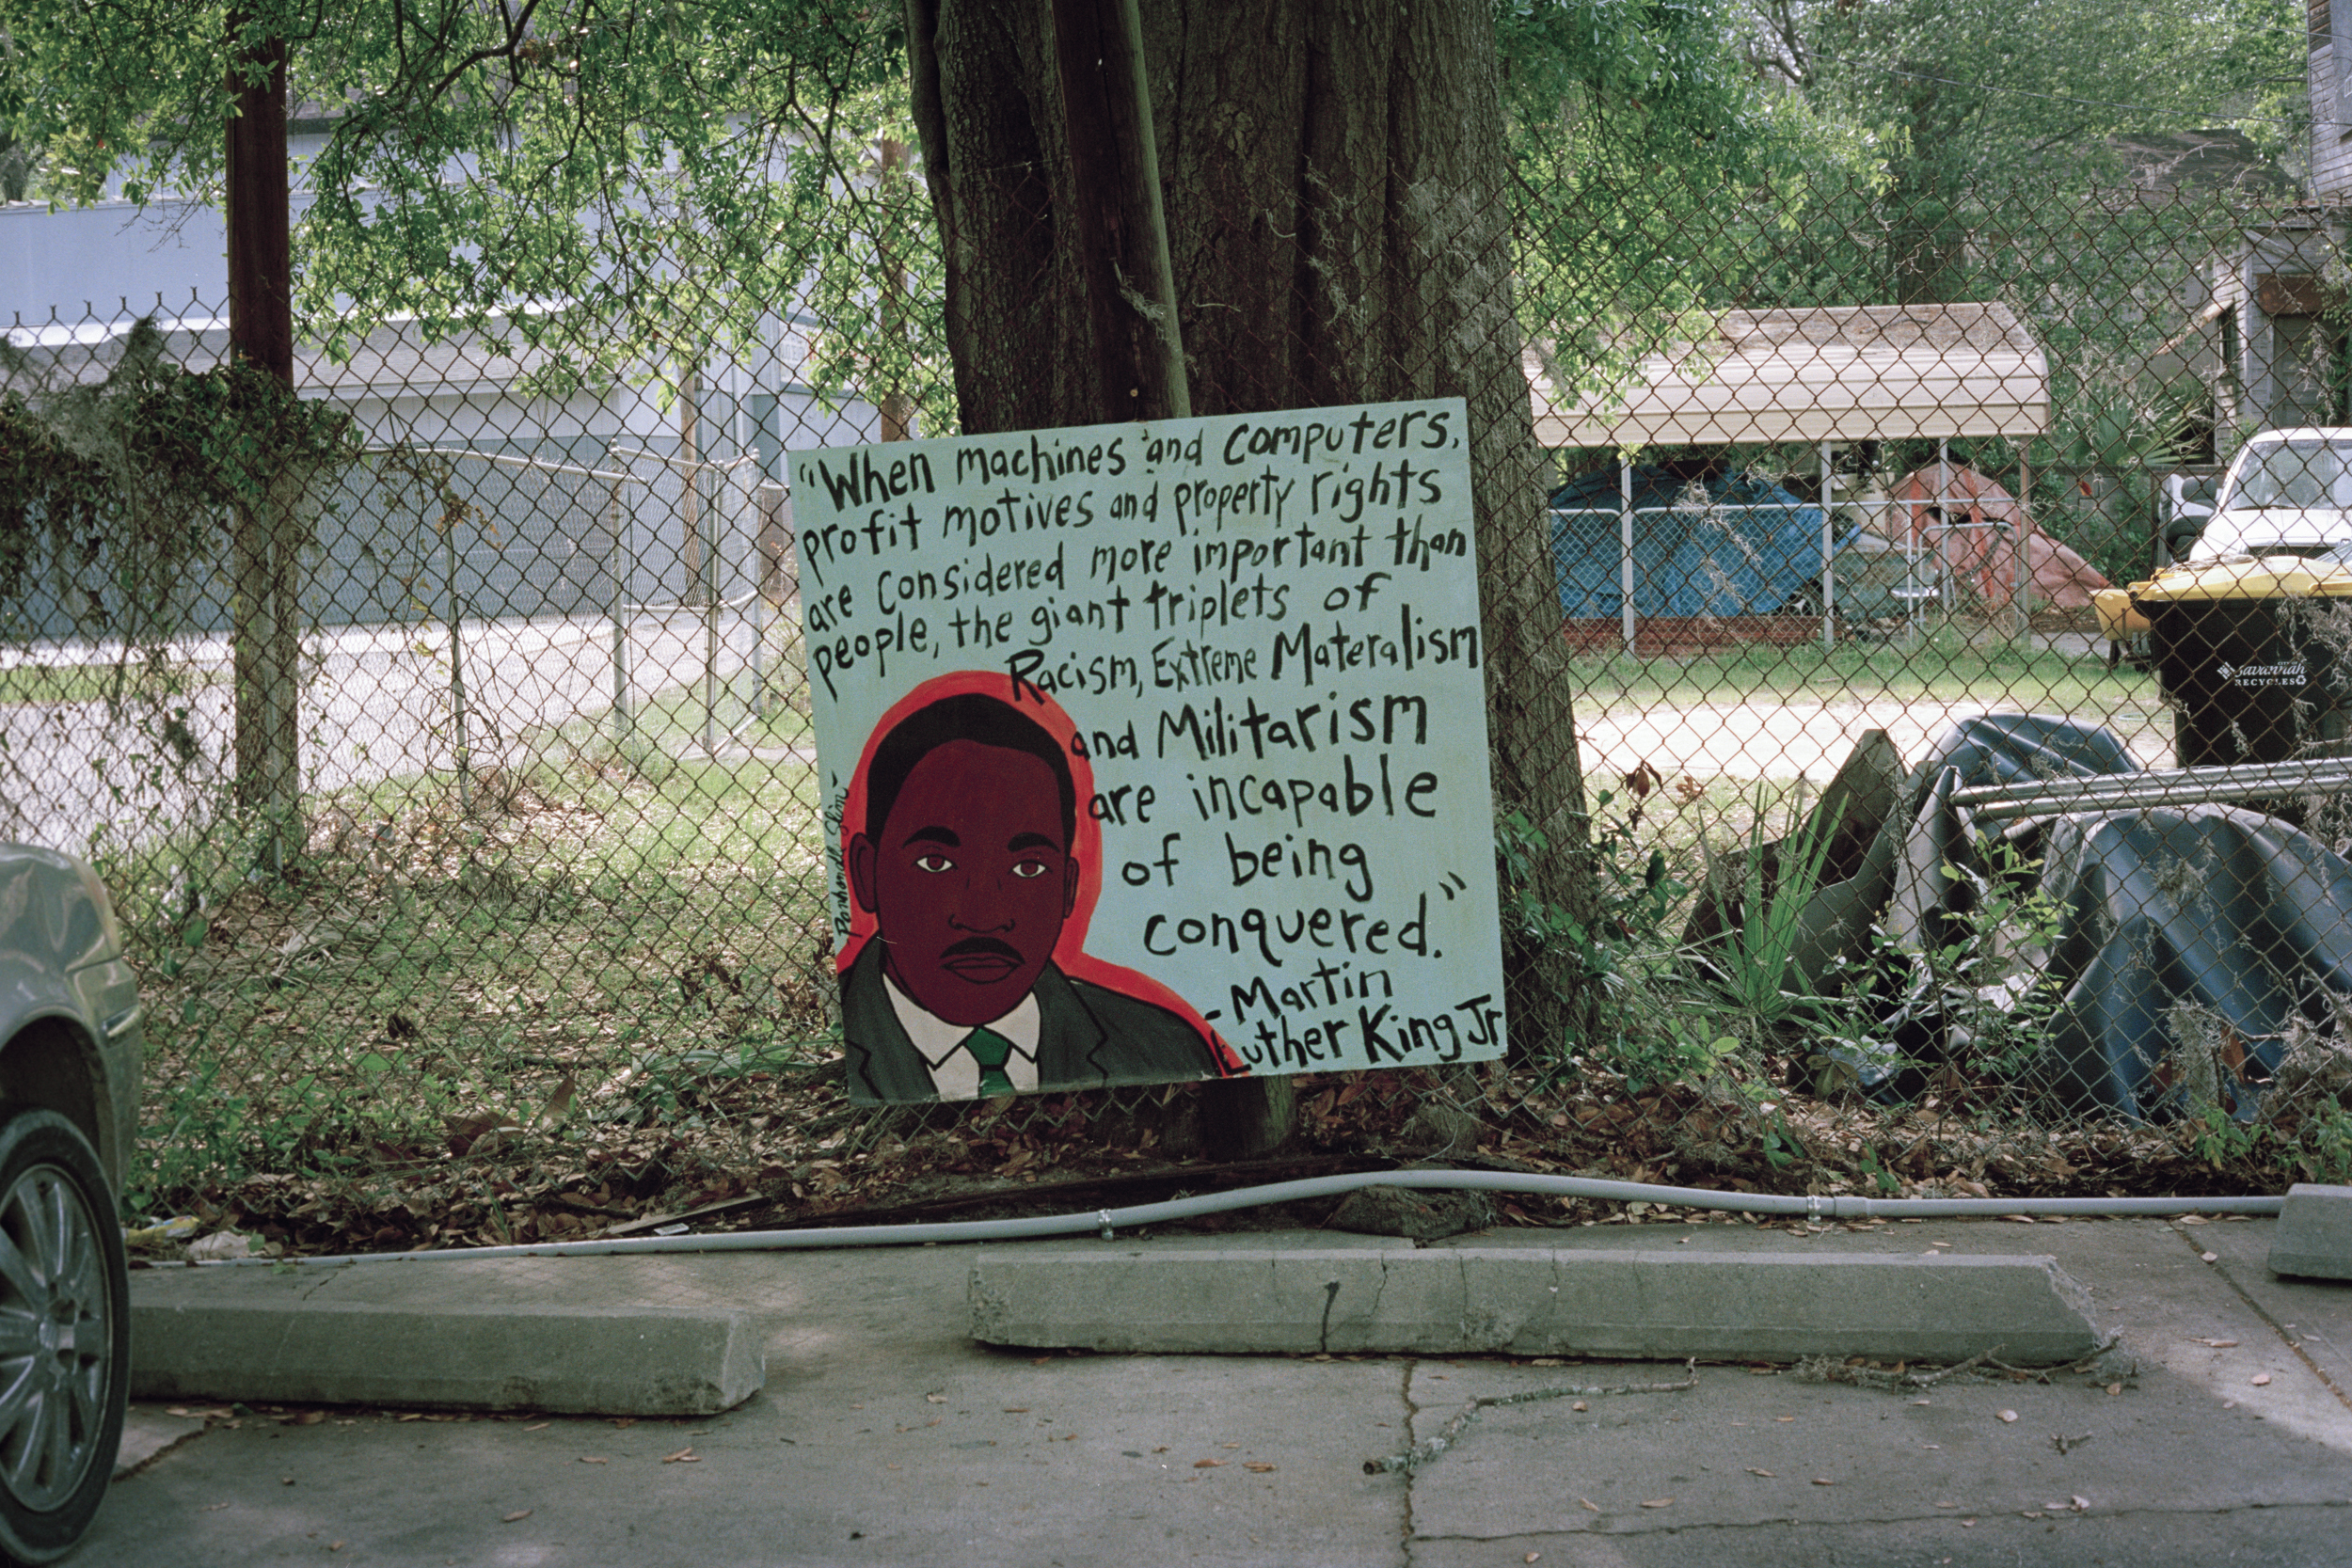 "When machines and computers,
profit motives and property rights
are considered more important than
people, the giant triplets of
Racism, Extreme Materalism
and Militarism
are incapable
of being
conquered."
-Martin
Luther King Jr
Panhandle Slim
CITY OF
Savannah
RECYCLES